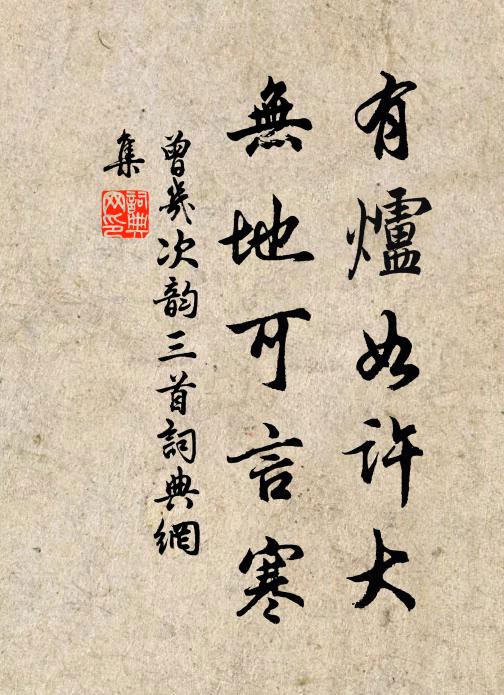 有爐如許大
無地可言寒
曾幾次韵三首詞典網
集
詞典
网印